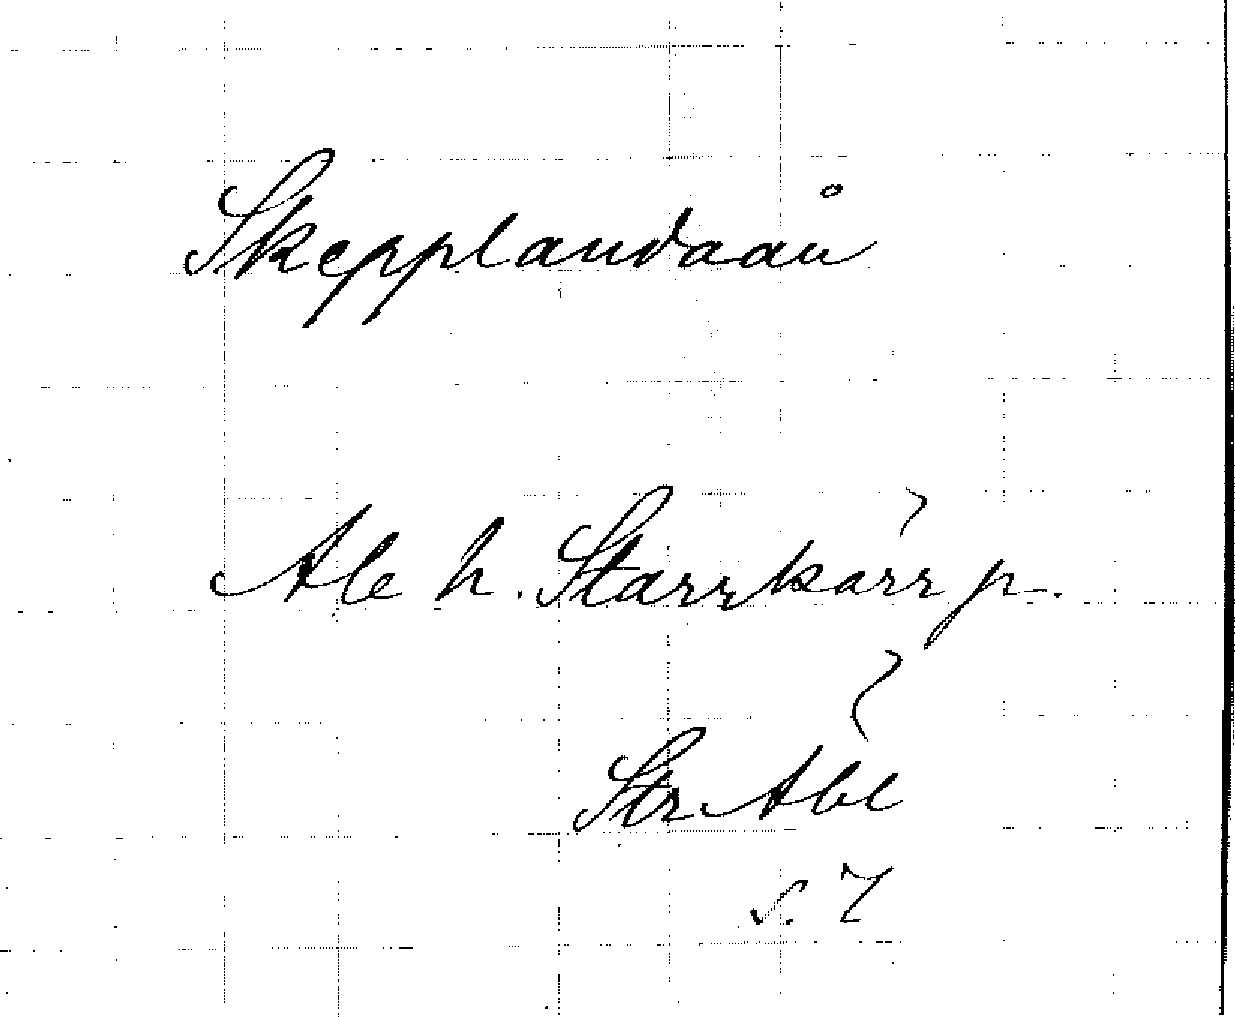 Skepplandaån
Ale h. Starrkärr p.
Str. Abl
s. 7